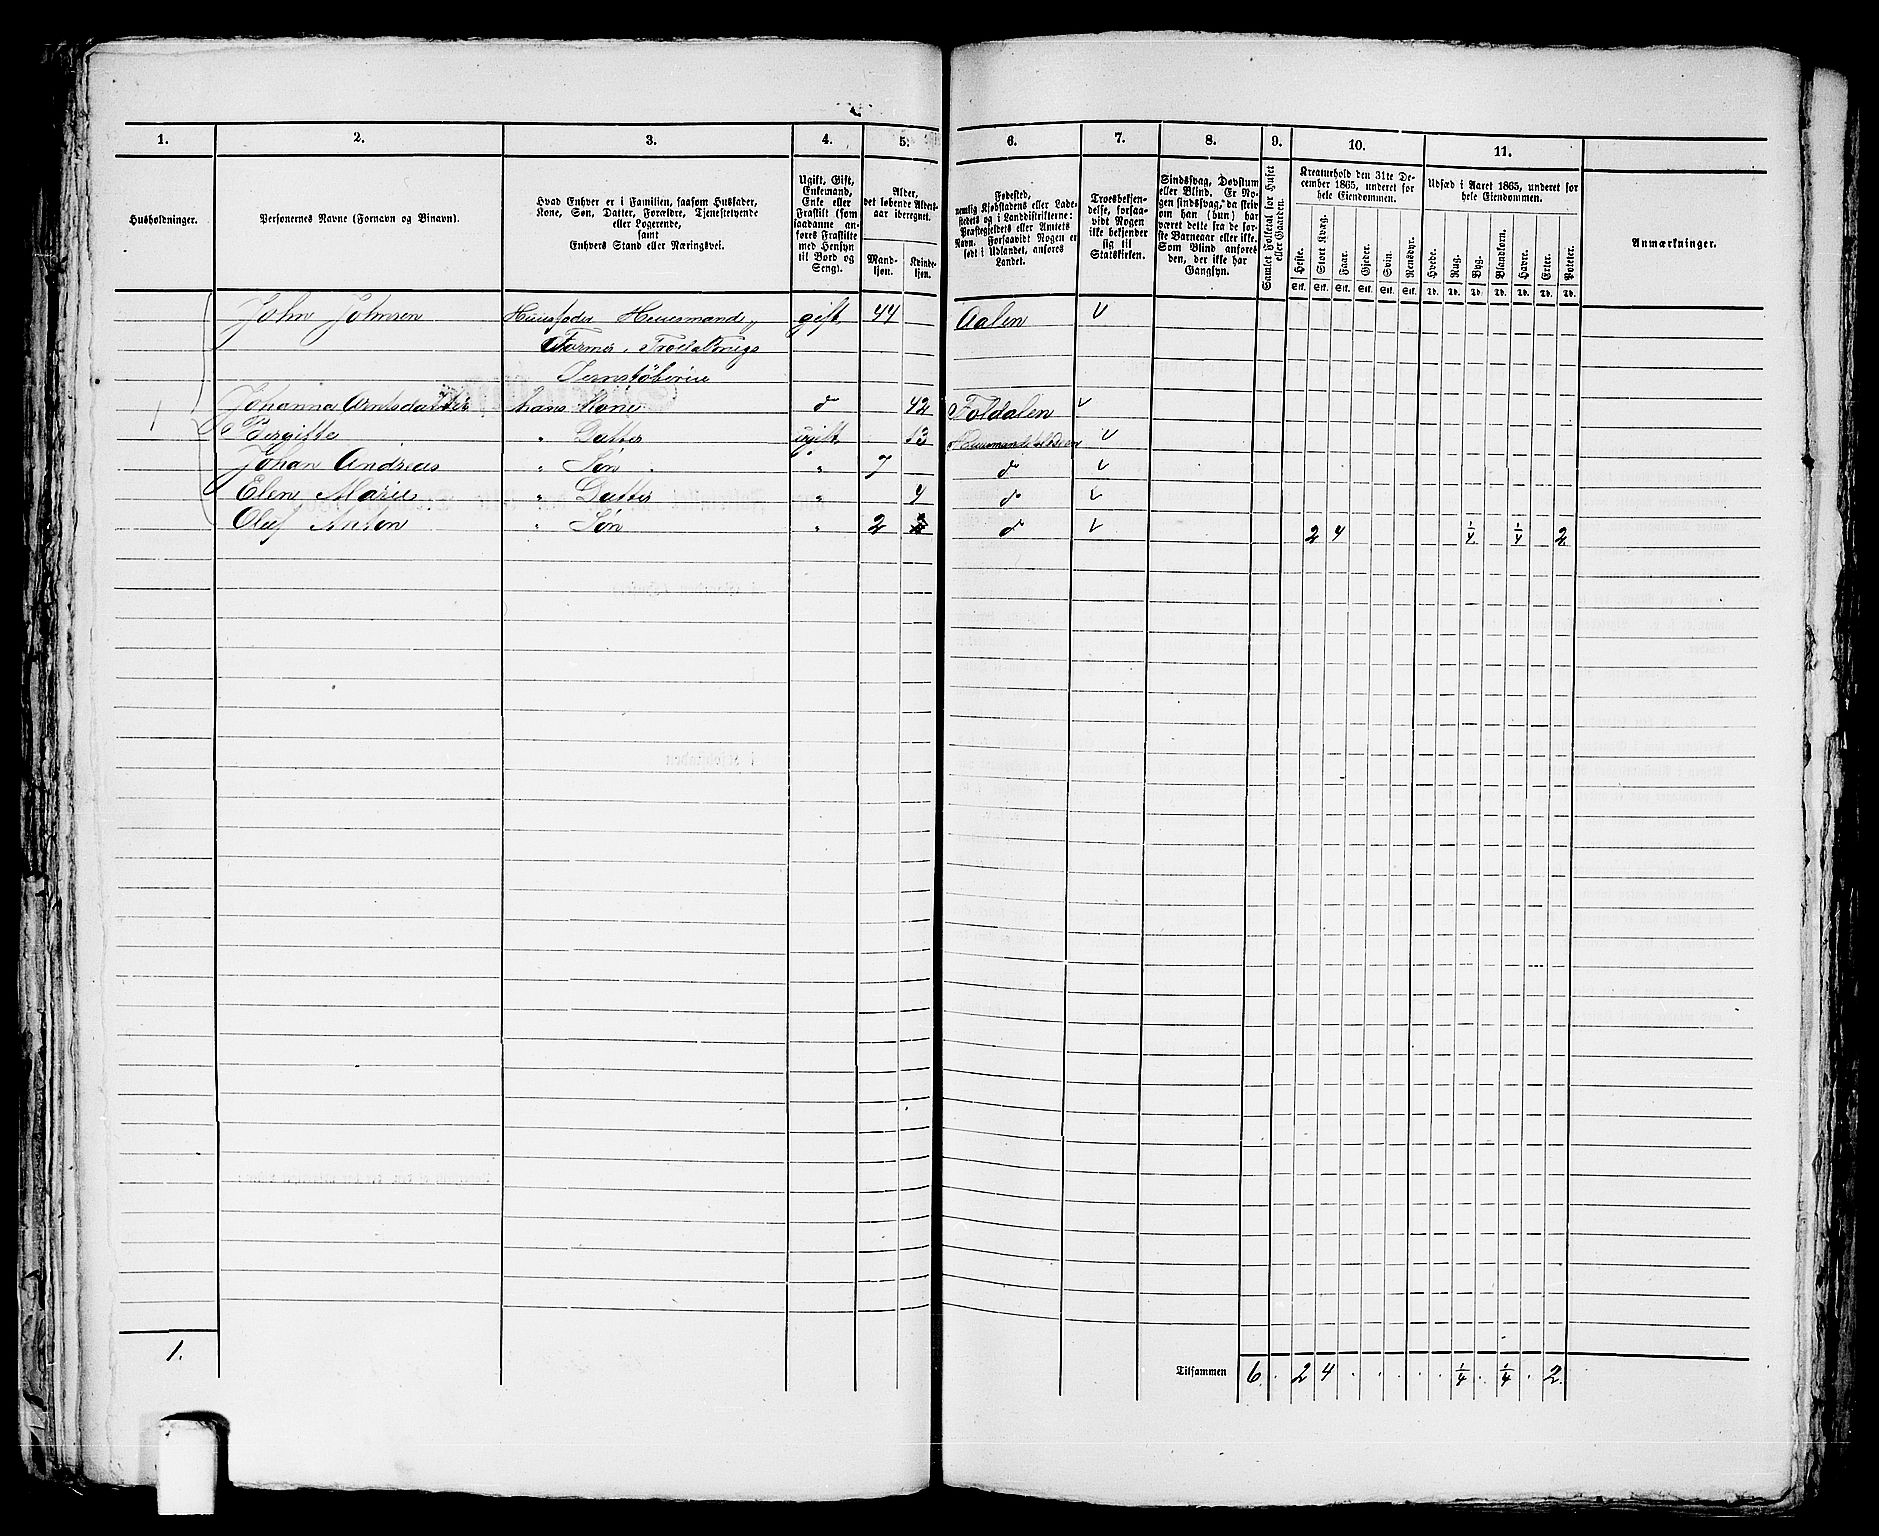 1. 2. 3. 4. 5. 6. 7. 8. 9. 10. 11.
Husholdninger.
Personernes Navne (Fornavn og Binavn).
Hvad Enhver er i Familien, saasom Husfader,
Kone, Søn, Datter, Forældre, Tjenestetyende
eller Logerende,
samt
Enhvers Stand eller Næringsvei.
Ugift, Gift,
Enkemand,
Enke eller
Fraskilt (som
saadanne an-
føres Fraskilte
med Hensyn
til Bord og
Seng).
Alder,
det løbende Alders-
aar iberegnet.
Mand-
kjøn.
Kvinde-
kjøn.
Fødested,
nemlig Kjøbstadens eller Lade-
stedets og i Landdistrikterne:
Præstegjeldets eller Amtets
Navn. Forsaavidt Nogen er
født i Udlandet, anføres
Landet.
Troesbekjen-
delse, forsaa-
vidt Nogen
ikke bekjender
sig til
Statskirken.
Sindssvag, Døvstum
eller Blind. Er No-
gen sindssvag, da skriv
om han (hun) har
været dette fra de før-
ste Barneaar eller ikke.
Som Blind anføres
den, der ikke har
Gangsyn.
Samlet Folketal for Huset
eller Gaarden.
Kreaturhold den 31te De-
cember 1865, underet for
hele Eiendommen.
Heste. Stort Kvæg. Faar. Gjeder. Svin. Rensdyr.
Stk. Stk. Stk. Stk. Stk. Stk.
Udsæd i Aaret 1865, underet for
hele Eiendommen.
Hvede. Rug. Byg. Blandkorn. Havre. Erter. Poteter.
Td. Td. Td. Td. Td. Td. Td.
Anmærkninger.
John Johnsen Huusfader Huusmand gift 44 Aalen
Former
Jernstøberie
1 Johanna Arntsdatter hans Kone d 42 Foldalen
Bergitte " Datter ugift 13
Johan Andreas " Søn " 7 d
Elen Marie " Datter " 4 d
Oluf Anton " Søn " 2 d 2 4 1/4 1/4 2
1.
Tilsammen 6 . 2 4 . . . . . 1/4 . 1/4 . 2.